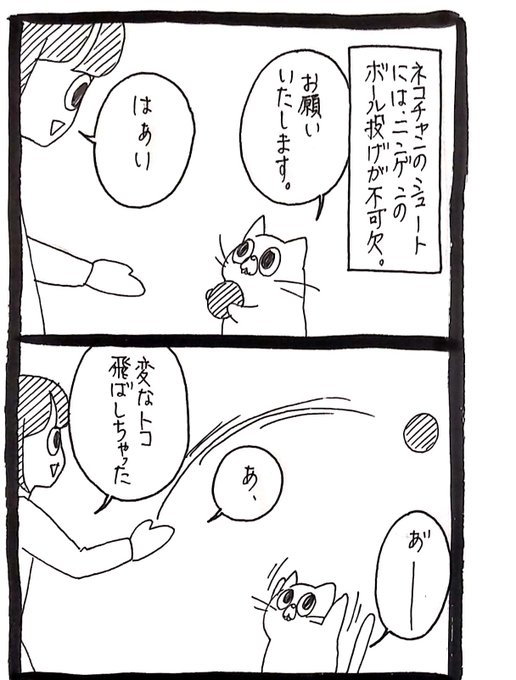 ネコチャンのシュート
には、ニンゲンの
ボール投げが不可欠。
お願い
いたします。
はぁい
あ、
変なトコ
飛ばしちゃった
あ゛ー